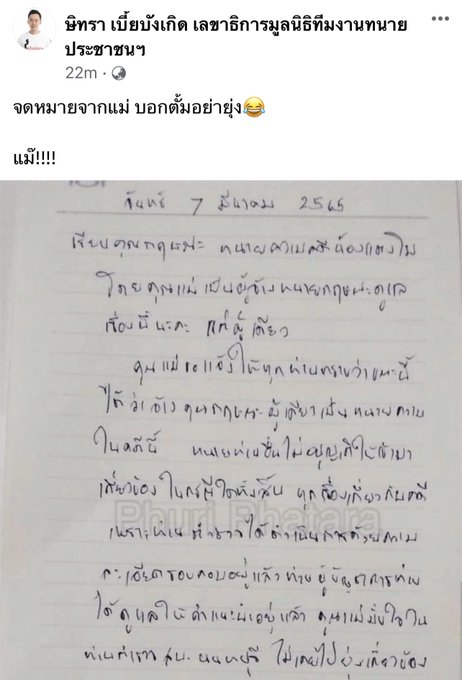 ษิทรา เบี้ยบังเกิด เลขาธิการมูลนิธิทีมงานทนาย
ประชาชนฯ
22m ·
จดหมายจากแม่ บอกตั้มอย่ายุ่ง😂
แม๊!!!!
จันทร์ 7 มีนาคม 2565
เรียนคุณกฤษณะ ทนายความคดีน้องแตงโม
โดยคุณแม่เป็นผู้จ้างทนายกฤษณะดูแล
เรื่องนี้นะคะ แต่ผู้เดียว
คุณแม่ขอแจ้งให้ทุกท่านทราบว่าขณะนี้
ได้ว่าจ้างคุณกฤษณะผู้เดียวเป็นทนายความ
ในคดีนี้ ทนายท่านอื่นไม่อนุญาติให้เข้ามา
เกี่ยวข้องในกรณีใดทั้งสิ้น ทุกเรื่องเกี่ยวกับคดี
Phuri Bhatara
เพราะท่านตำรวจได้ดำเนินการด้วยความ
ละเอียดรอบคอบอยู่แล้ว ท่านผู้บัญชาการท่าน
ได้ดูแลให้คำแนะนำอยู่แล้ว คุณแม่มั่นใจใน
ท่านตำรวจ สภ. นนทบุรี ไม่เคยไปยุ่งเกี่ยวข้อง